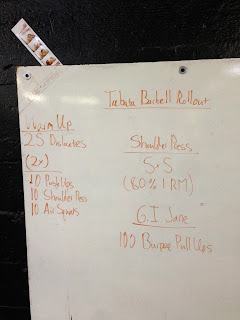 Tabata Barbell Rollout
Warm Up
25 Dislocates
(2x)
10 Push Ups
10 Shoulder Press
10 Air Squats
Shoulder Press
5x5
(80% 1 RM)
G.I. Jane
100 Burpee Pull Ups